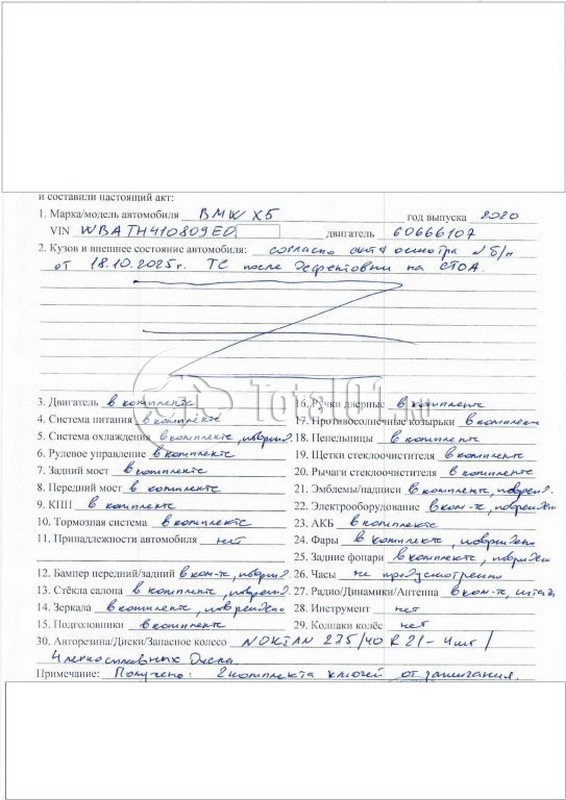 и составили настоящий акт:
1. Марка/модель автомобиля BMW X5 год выпуска 2020
VIN WBATH410809E0 двигатель 60666107
2. Кузов и внешнее состояние автомобиля: согласно акта осмотра №б/н
от 18.10.2025г. ТС после дефектовки на СТОА.
Total01.ru
3. Двигатель в комплекте 16. Ручки дверные в комплекте
4. Система питания в комплекте 17. Противосолнечные козырьки в комплекте
5. Система охлаждения в комплекте, поврежд. 18. Пепельницы в комплекте
6. Рулевое управление в комплекте 19. Щетки стеклоочистителя в комплекте
7. Задний мост в комплекте 20. Рычаги стеклоочистителя в комплекте
8. Передний мост в комплекте 21. Эмблемы/надписи в комплекте, поврежд.
9. КПП в комплекте 22. Электрооборудование в ком-те, поврежден
10. Тормозная система в комплекте 23. АКБ в комплекте
11. Принадлежности автомобиля нет 24. Фары в комплекте, повреждены
25. Задние фонари в комплекте, поврежден
12. Бампер передний/задний в ком-те, поврежд. 26. Часы не предусмотрены
13. Стёкла салона в комплекте, поврежд. 27. Радио/Динамики/Антенна в ком-те, штатн
14. Зеркала в комплекте, повреждено 28. Инструмент нет
15. Подголовники в комплекте 29. Колпаки колёс нет
30. Авторезина/Диски/Запасное колесо NOKIAN 275/40 R21-4шт/
4 легкосплавных диска.
Примечание: Получено: 2 комплекта ключей от зажигания.